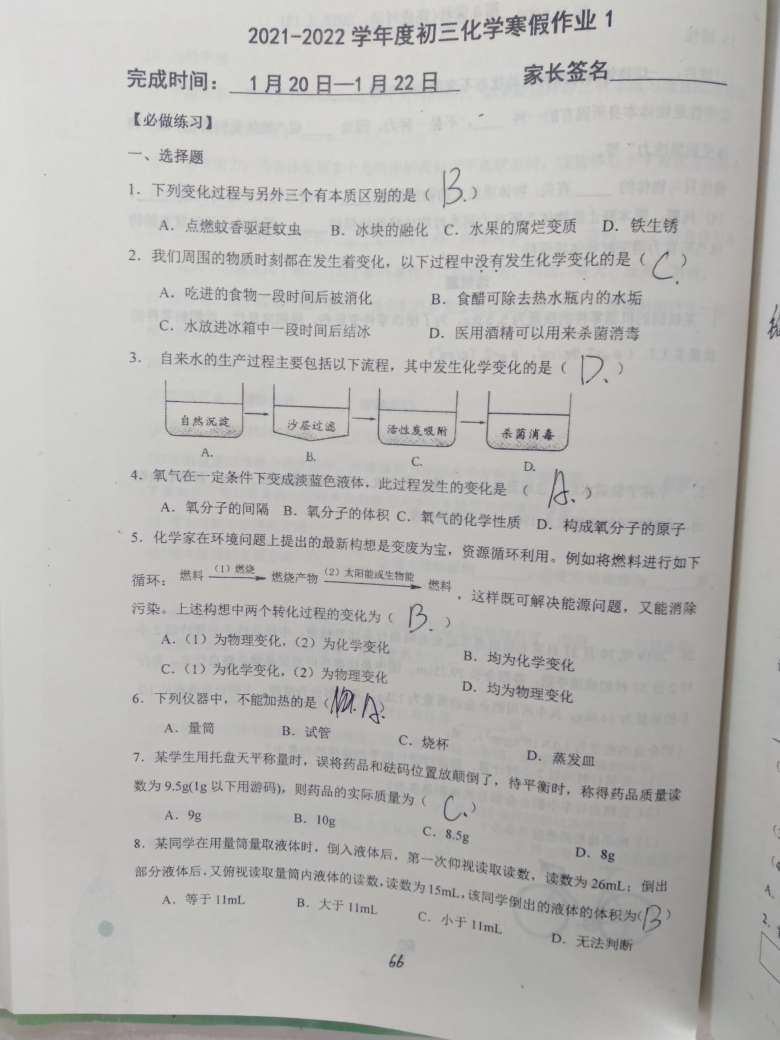 2021-2022 学年度初三化学寒假作业 1
完成时间： 1 月 20 日—1 月 22 日 家长签名
【必做练习】
一、选择题
1．下列变化过程与另外三个有本质区别的是（ B. ）
A．点燃蚊香驱赶蚊虫 B．冰块的融化 C．水果的腐烂变质 D．铁生锈
2．我们周围的物质时刻都在发生着变化，以下过程中没有发生化学变化的是（ C. ）
A．吃进的食物一段时间后被消化 B．食醋可除去热水瓶内的水垢
C．水放进冰箱中一段时间后结冰 D．医用酒精可以用来杀菌消毒
3． 自来水的生产过程主要包括以下流程，其中发生化学变化的是（ D、 ）
自然沉淀 沙层过滤 活性炭吸附 杀菌消毒
A. B. C. D.
4．氧气在一定条件下变成淡蓝色液体，此过程发生的变化是 （ A. ）
A．氧分子的间隔 B．氧分子的体积 C．氧气的化学性质 D．构成氧分子的原子
5．化学家在环境问题上提出的最新构想是变废为宝，资源循环利用。例如将燃料进行如下
循环： 燃料 （1）燃烧 燃烧产物 （2）太阳能或生物能 燃料 ，这样既可解决能源问题，又能消除
污染。上述构想中两个转化过程的变化为（ B. ）
A.（1）为物理变化，（2）为化学变化 B．均为化学变化
C.（1）为化学变化，（2）为物理变化 D．均为物理变化
6．下列仪器中，不能加热的是（ A. ）
A．量筒 B．试管 C．烧杯 D．蒸发皿
7．某学生用托盘天平称量时，误将药品和砝码位置放颠倒了，待平衡时，称得药品质量读
数为 9.5g(1g 以下用游码)，则药品的实际质量为（ C. ）
A．9g B．10g C．8.5g D．8g
8．某同学在用量筒量取液体时，倒入液体后，第一次仰视读取读数，读数为 26mL；倒出
部分液体后，又俯视读取量筒内液体的读数，读数为 15mL，该同学倒出的液体的体积为( B )
A．等于 11mL B．大于 11mL C．小于 11mL D．无法判断
66